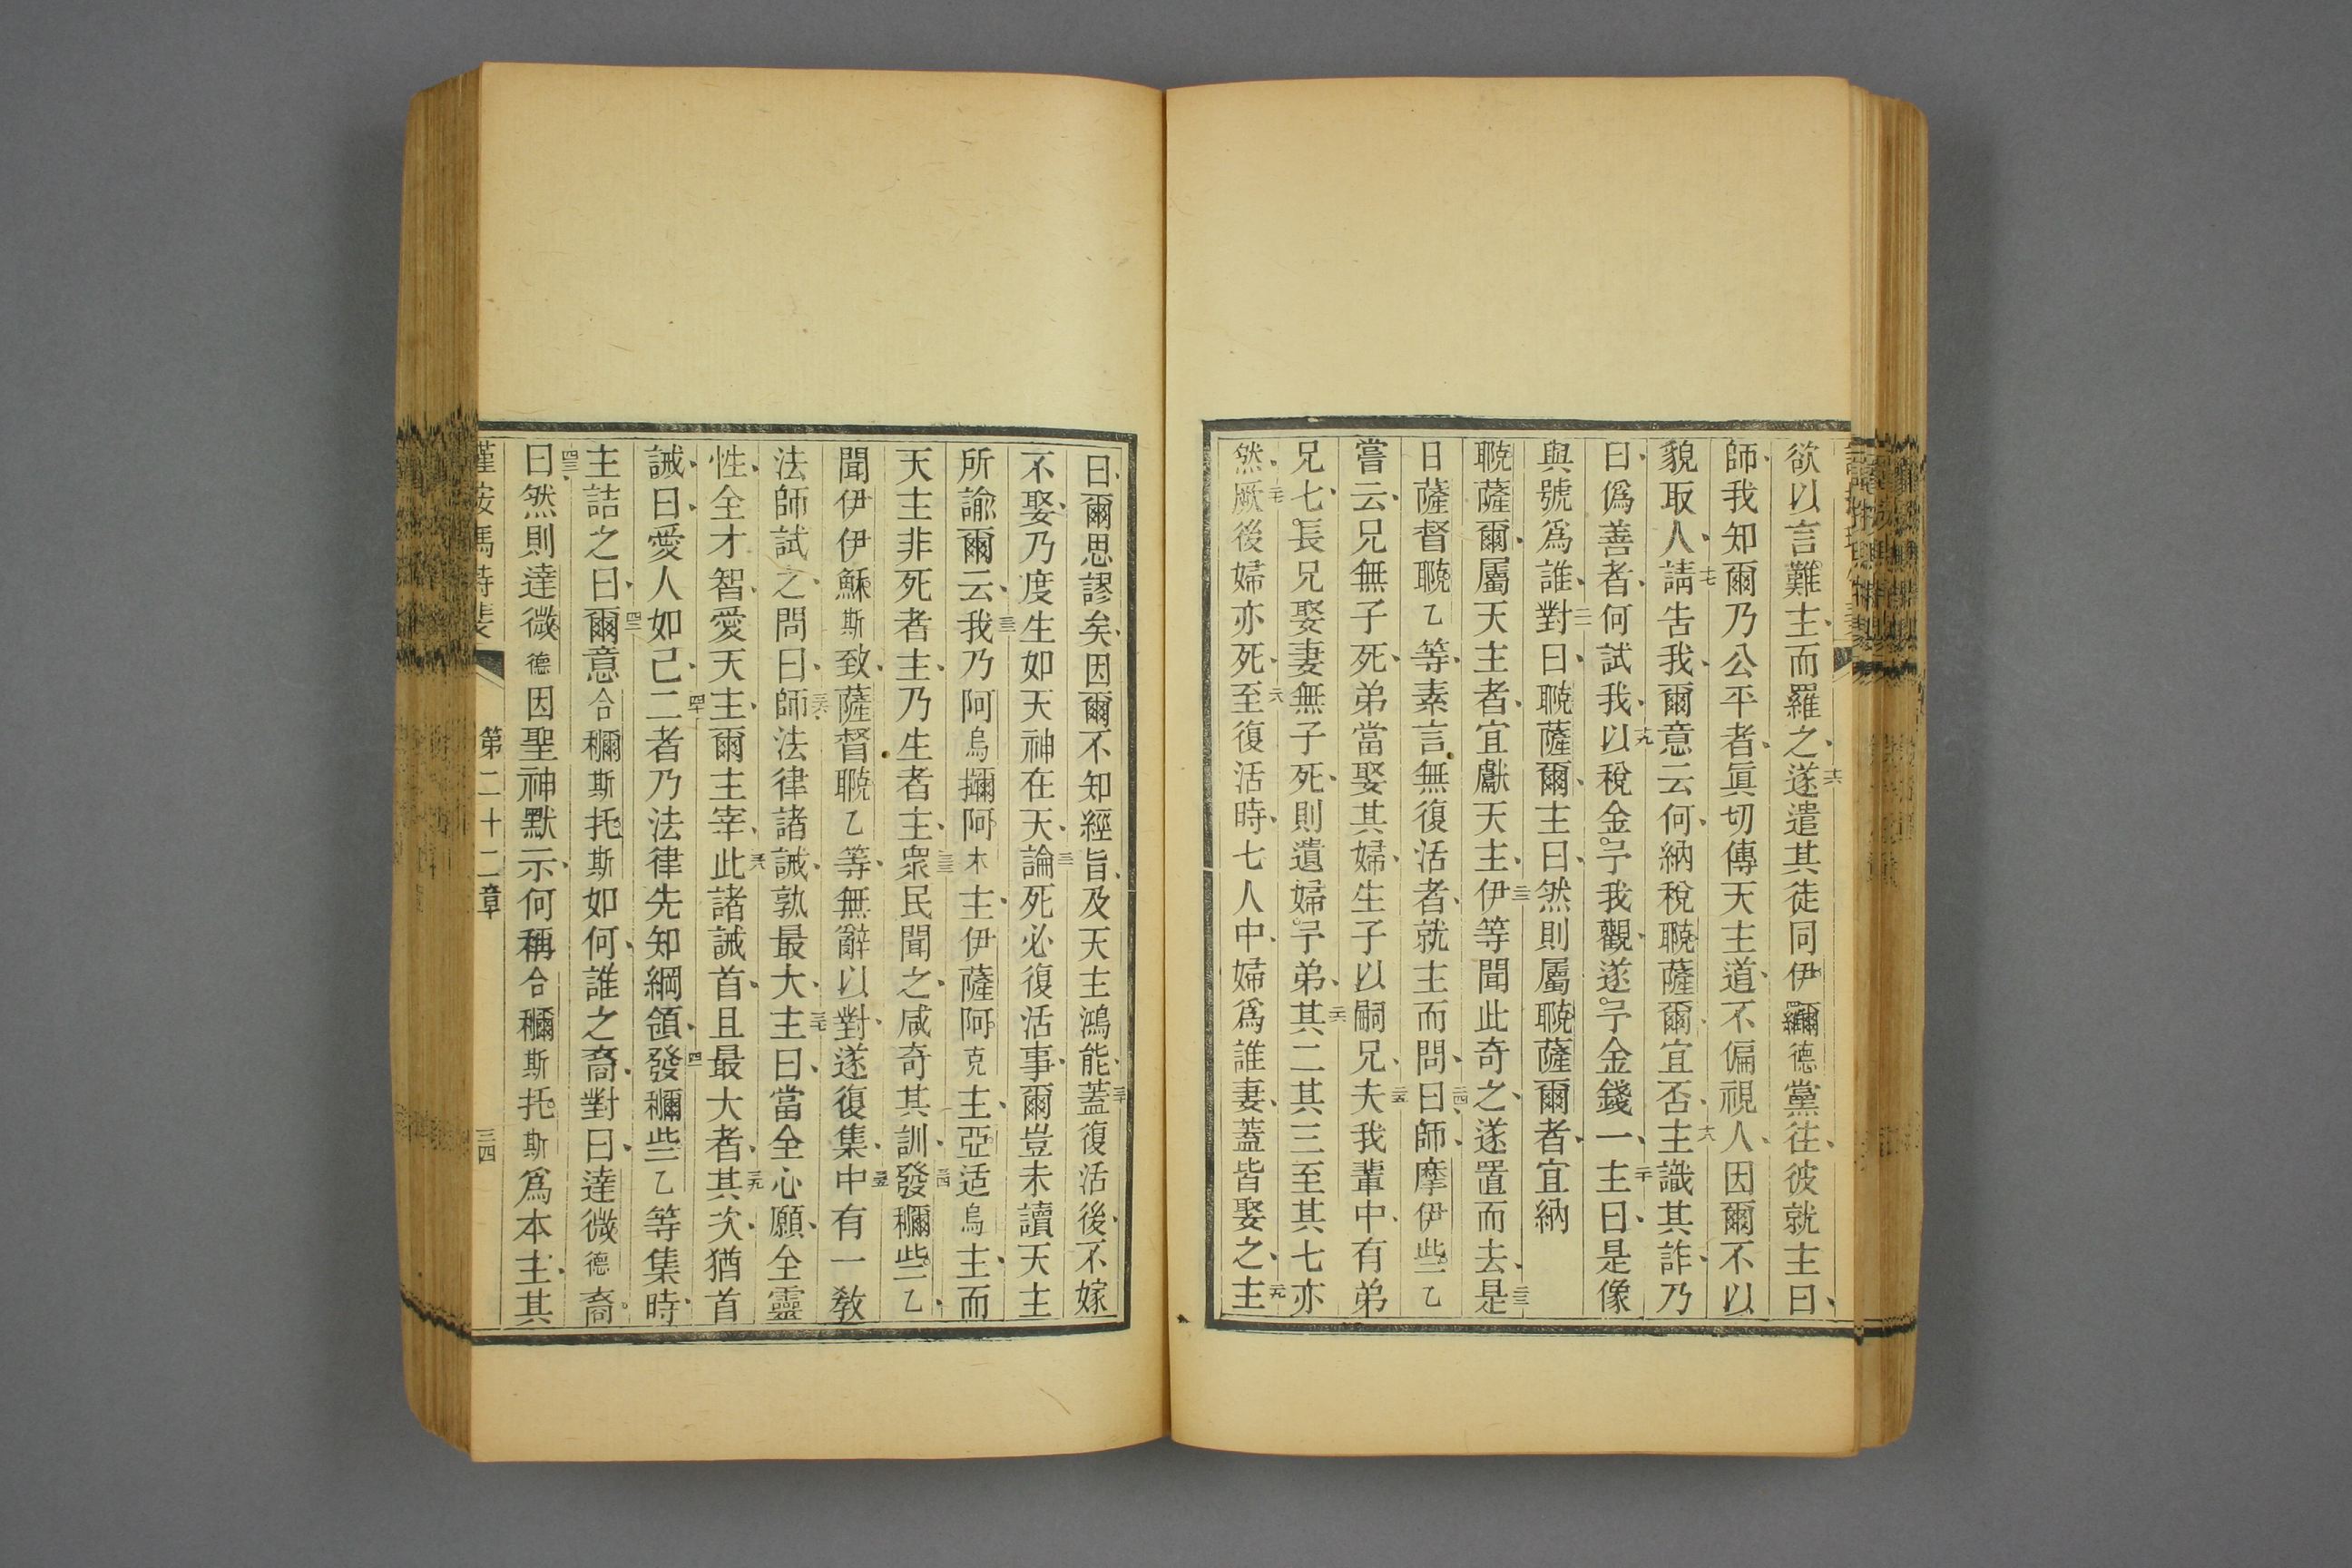 欲以言難主而羅之遂遣其徒同伊德黨徃彼就主曰
師我知爾乃公平者眞切傳天主道不偏視人因爾不以
貌取人請吿我爾意云何納稅聸薩爾宜否主識其詐乃
曰僞善者何試我以稅金予我觀遂予金錢一主曰是像
與號爲誰對曰薩爾主曰然則屬薩爾者宜納
薩爾屬天主者宜獻天主伊等聞此奇之遂置而去是
日薩督乙等素言無復活者就主而問曰師摩伊些乙
嘗云兄無子死弟當娶其婦生子以嗣兄夫我輩中有弟
兄七長兄娶妻無子死則遺婦予弟其二其三至其七亦
然厥後婦亦死至復活時七人中婦爲誰妻蓋皆娶之主
曰爾思謬矣因爾不知經旨及天主鴻能蓋復活後不嫁
不娶乃度生如天神在天論死必復活事爾豈未讀天主
所諭爾云我乃阿烏擟阿木主伊薩阿克主亞适烏主而
天主非死者主乃生者主衆民聞之咸奇其訓發穪些乙
聞伊伊穌斯致薩督乙等無辭以對遂復集中有一敎
法師試之問曰師法律諸誡孰最大主曰當全心願全靈
性全才智愛天主爾主宰此諸誡首且最大者其次猶首
誡曰愛人如己二者乃法律先知綱領發穪些乙等集時
主詰之曰爾意合穪斯托斯如何誰之裔對曰達微德裔
曰然則達微德因聖神默示何稱合穪斯托斯爲本主其
第二十二章
三四